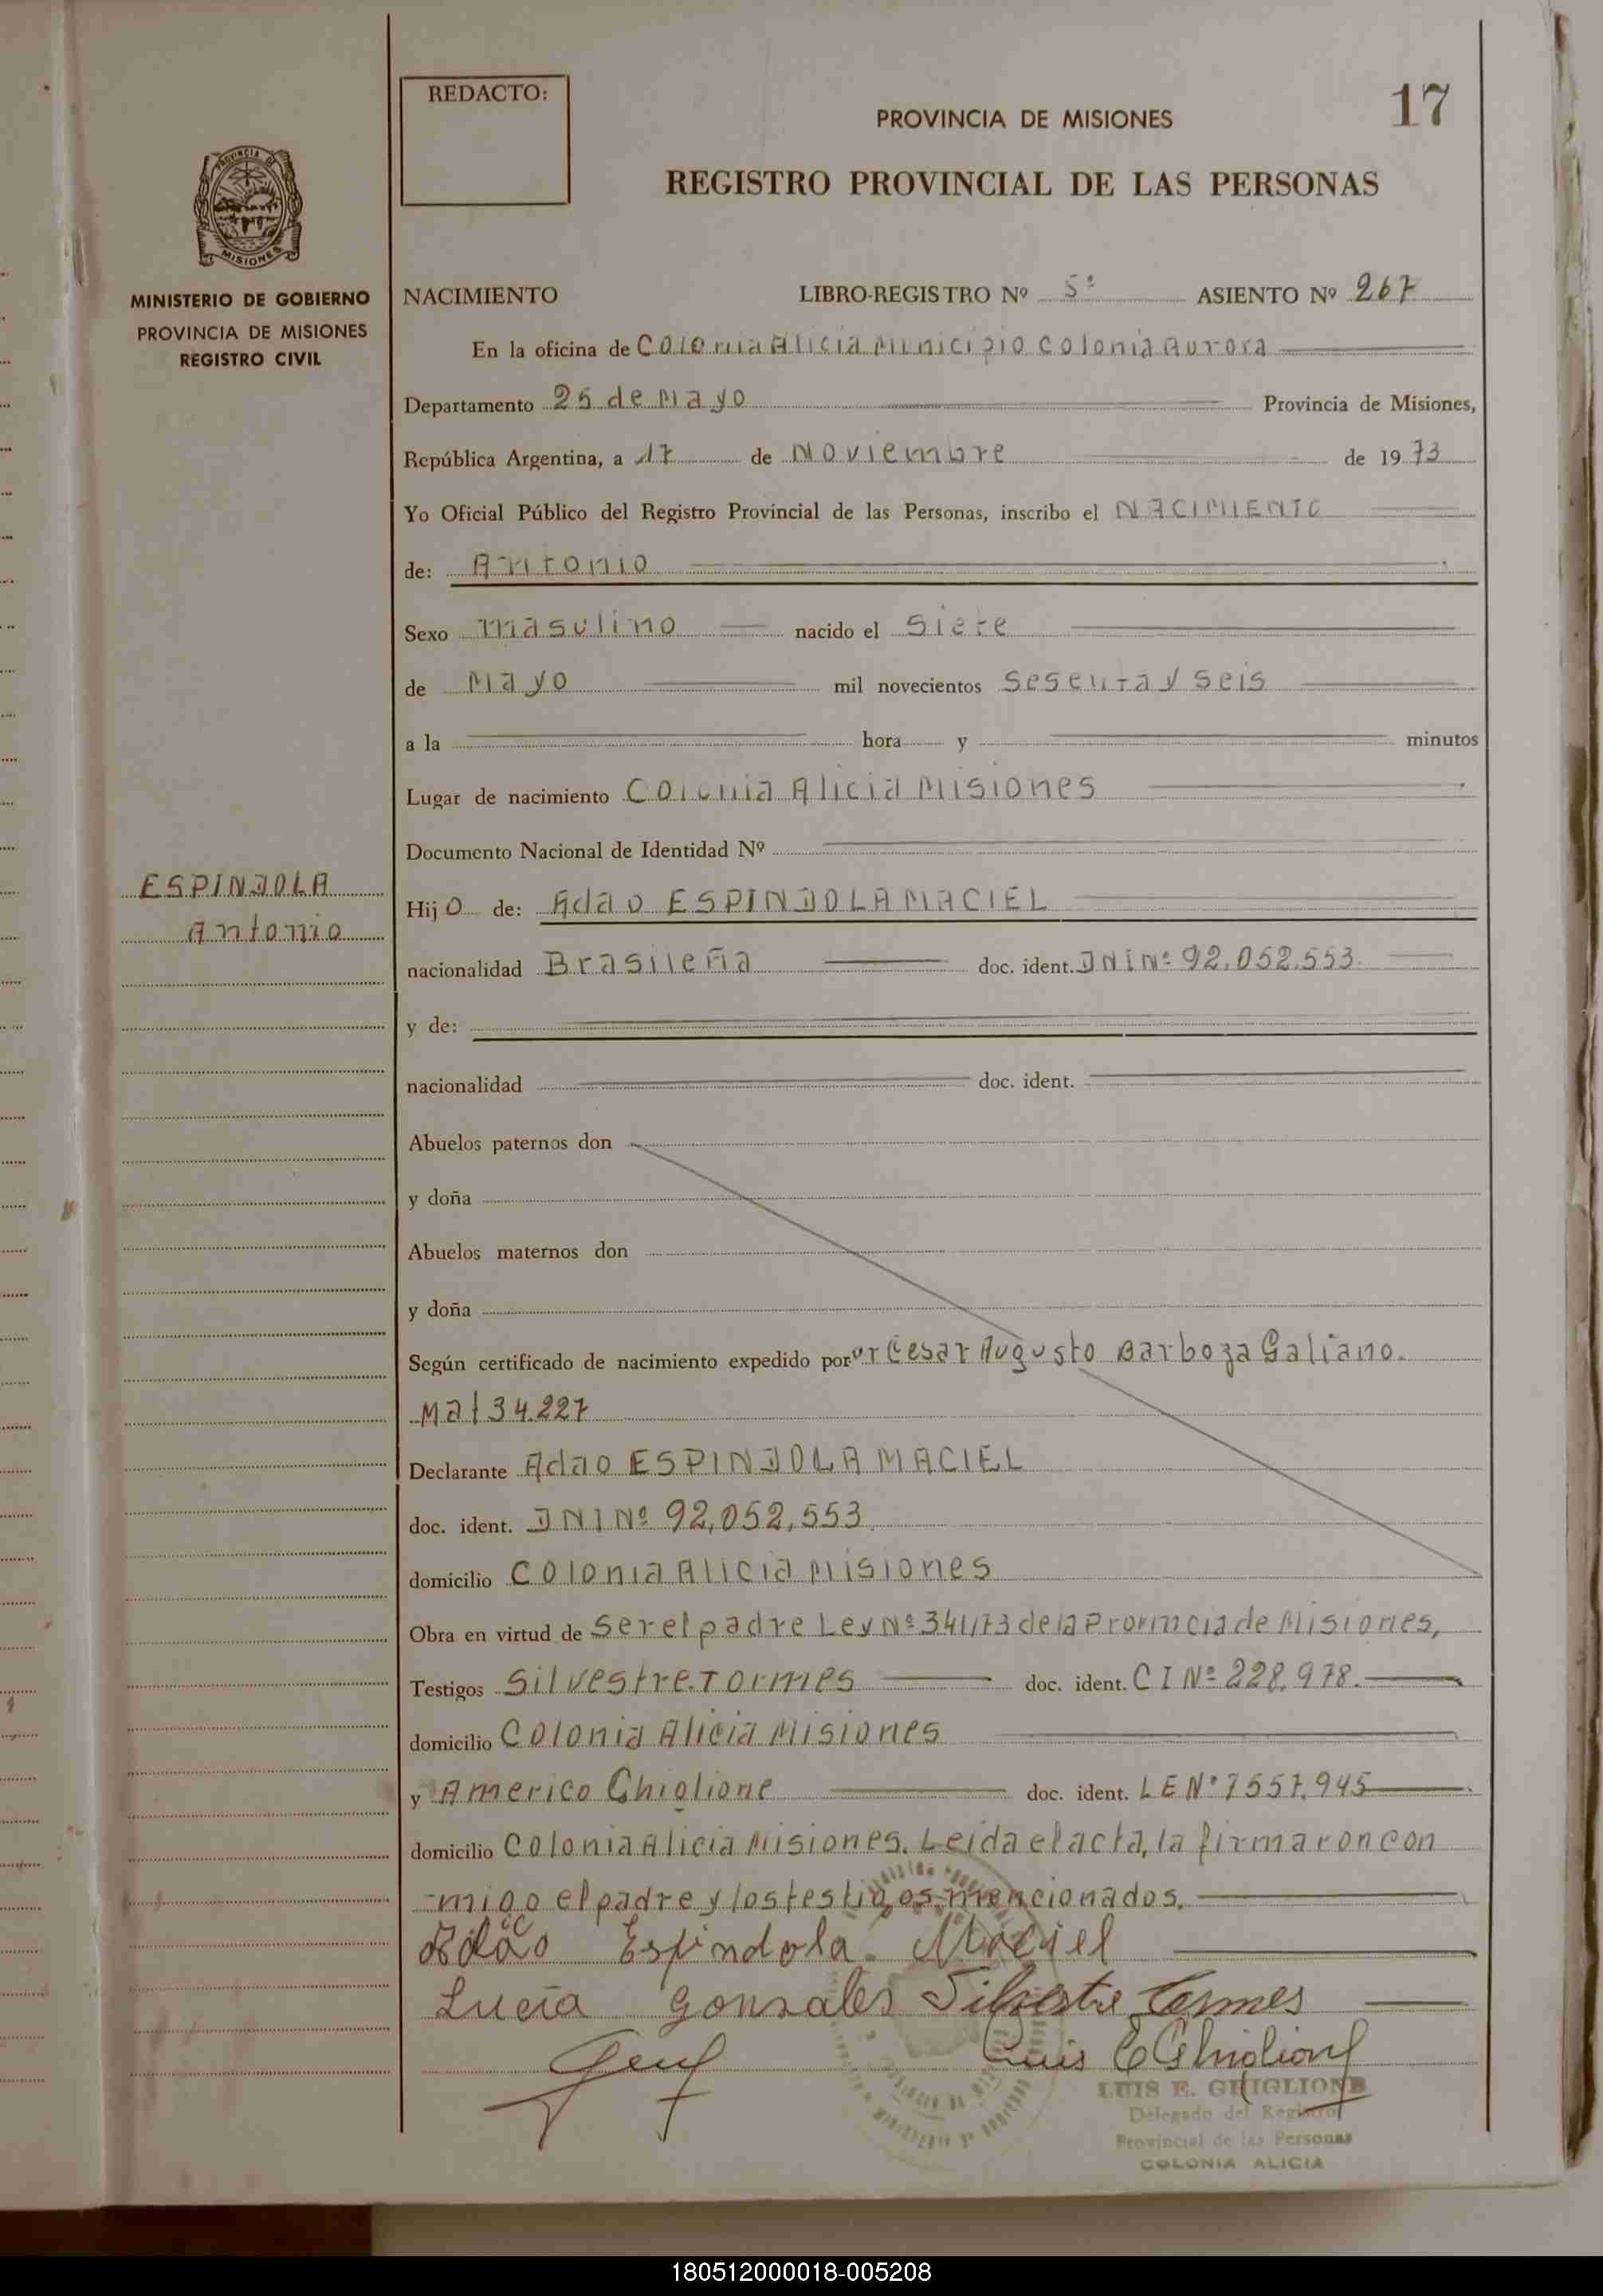 REDACTO:
17
PROVINCIA DE MISIONES
REGISTRO PROVINCIAL DE LAS PERSONAS
PROVINCIA DE
MISIONES
MINISTERIO DE GOBIERNO
PROVINCIA DE MISIONES
REGISTRO CIVIL
NACIMIENTO LIBRO-REGISTRO Nº 5º ASIENTO Nº 267
En la oficina de Colonia Alicia Municipio Colonia Aurora
Departamento 25 de Mayo Provincia de Misiones,
República Argentina, a 17 de Noviembre de 19 73
Yo Oficial Público del Registro Provincial de las Personas, inscribo el NACIMIENTO
de: Antonio
Sexo masulino nacido el Siete
de Mayo mil novecientos sesenta y seis
a la hora y minutos
Lugar de nacimiento Colonia Alicia Misiones
Documento Nacional de Identidad Nº
ESPINDOLA
Antonio
Hij o de: Adao ESPINDOLA MACIEL
nacionalidad Brasileña doc. ident. DNI Nº 92,052,553
y de:
nacionalidad doc. ident.
Abuelos paternos don
y doña
Abuelos maternos don
y doña
Según certificado de nacimiento expedido por Cesar Augusto Barboza Galiano.
Mat 34.227
Declarante Adao ESPINDOLA MACIEL
doc. ident. DNI Nº 92,052,553
domicilio Colonia Alicia Misiones
Obra en virtud de Ser el padre Ley Nº 341/73 de la Provincia de Misiones,
Testigos Silvestre Tormes doc. ident. C I Nº 228.978.
domicilio Colonia Alicia Misiones
y Americo Ghiglione doc. ident. L E Nº 7557.945
domicilio Colonia Alicia Misiones. Leida el acta, la firmaron con
migo el padre y los testigos mencionados.
Adão Espindola Maciel
Lucia Gonsales Silvestre Tormes
Luis E Ghiglione
LUIS E. GHIGLIONE
Delegado del Registro
Provincial de las Personas
COLONIA ALICIA
180512000018-005208